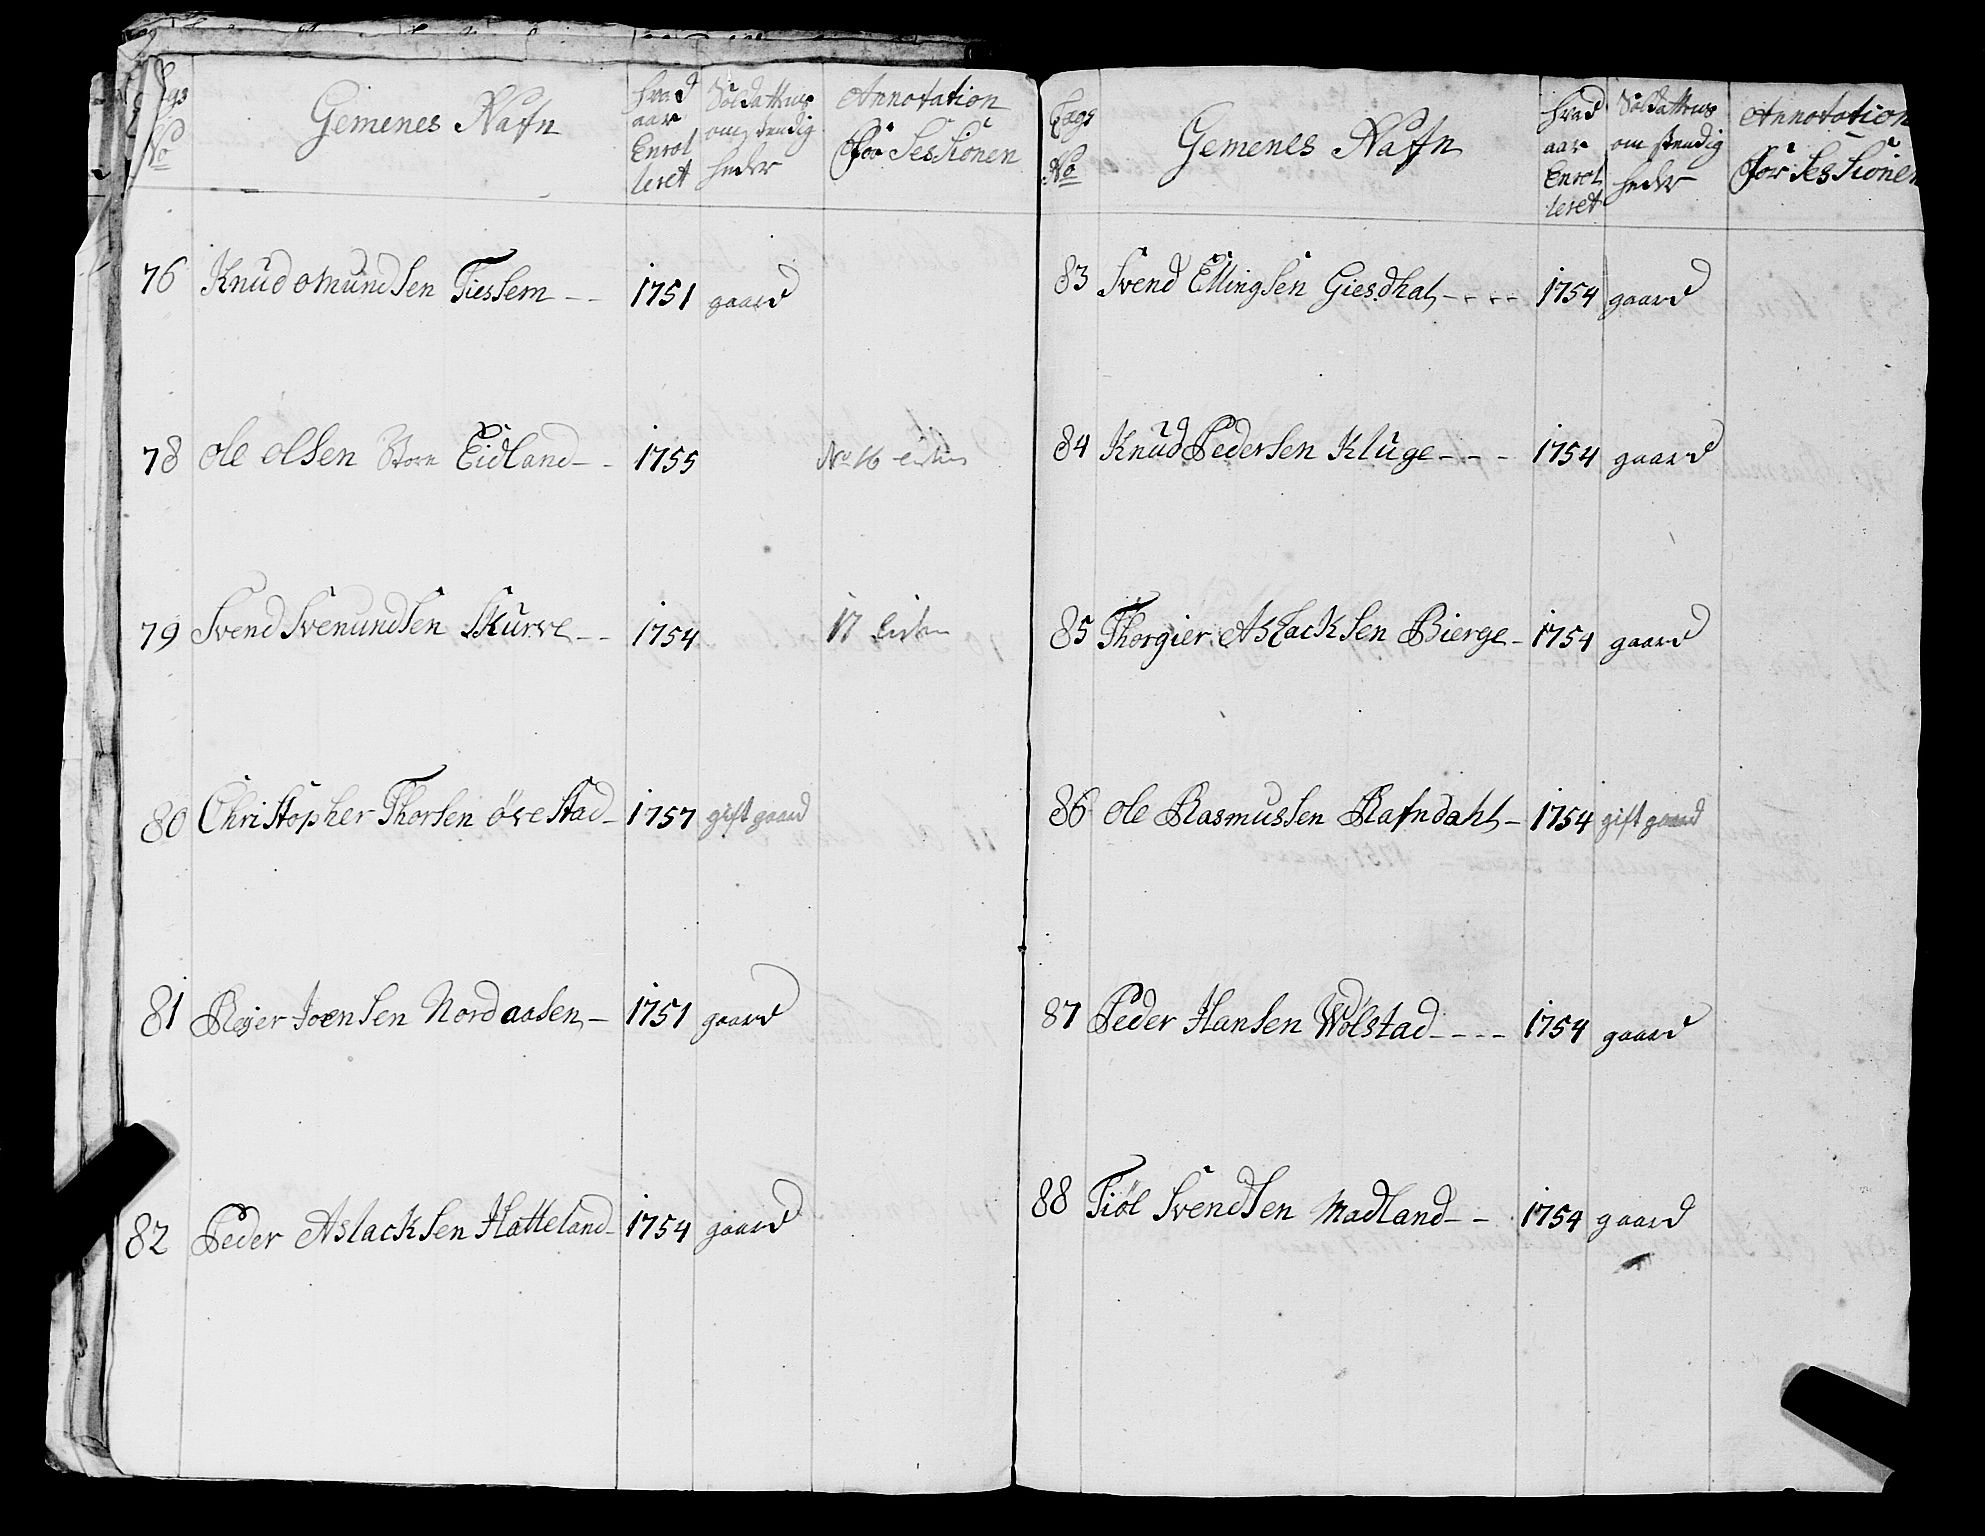 Lægs No | Gemenes Nafn | hvad aar Enrolleret | Soldatters omstendigheder | Annotation For Sessionen
76 Knud omundsen Tiessem - - 1751 gaard
78 ole olsen Store Eidland - - 1755 No 16
79 Svend Svenundsen Skurve - - 1754 17
80 Christopher Thorsen öve stad - 1757 gift gaard
81 Reyer Joensen Nordaasen - 1751 gaard
82 Peder Aslacksen Hatteland - 1754 gaard
Lægs No | Gemenes Nafn | hvad aar Enrolleret | Soldatters omstendigheder | Annotation For Sessionen
83 Svend Ellingsen Giesdhal - - - - 1754 gaard
84 Knud Pedersen Kluge - - - 1754 gaard
85 Thorgier Aslacksen Bierge - 1754 gaard
86 ole Rasmussen Rafndahl - 1754 gift gaard
87 Peder Hansen Wølstad - - - - 1754 gaard
88 Tiøl Svendsen Madland - - 1754 gaard